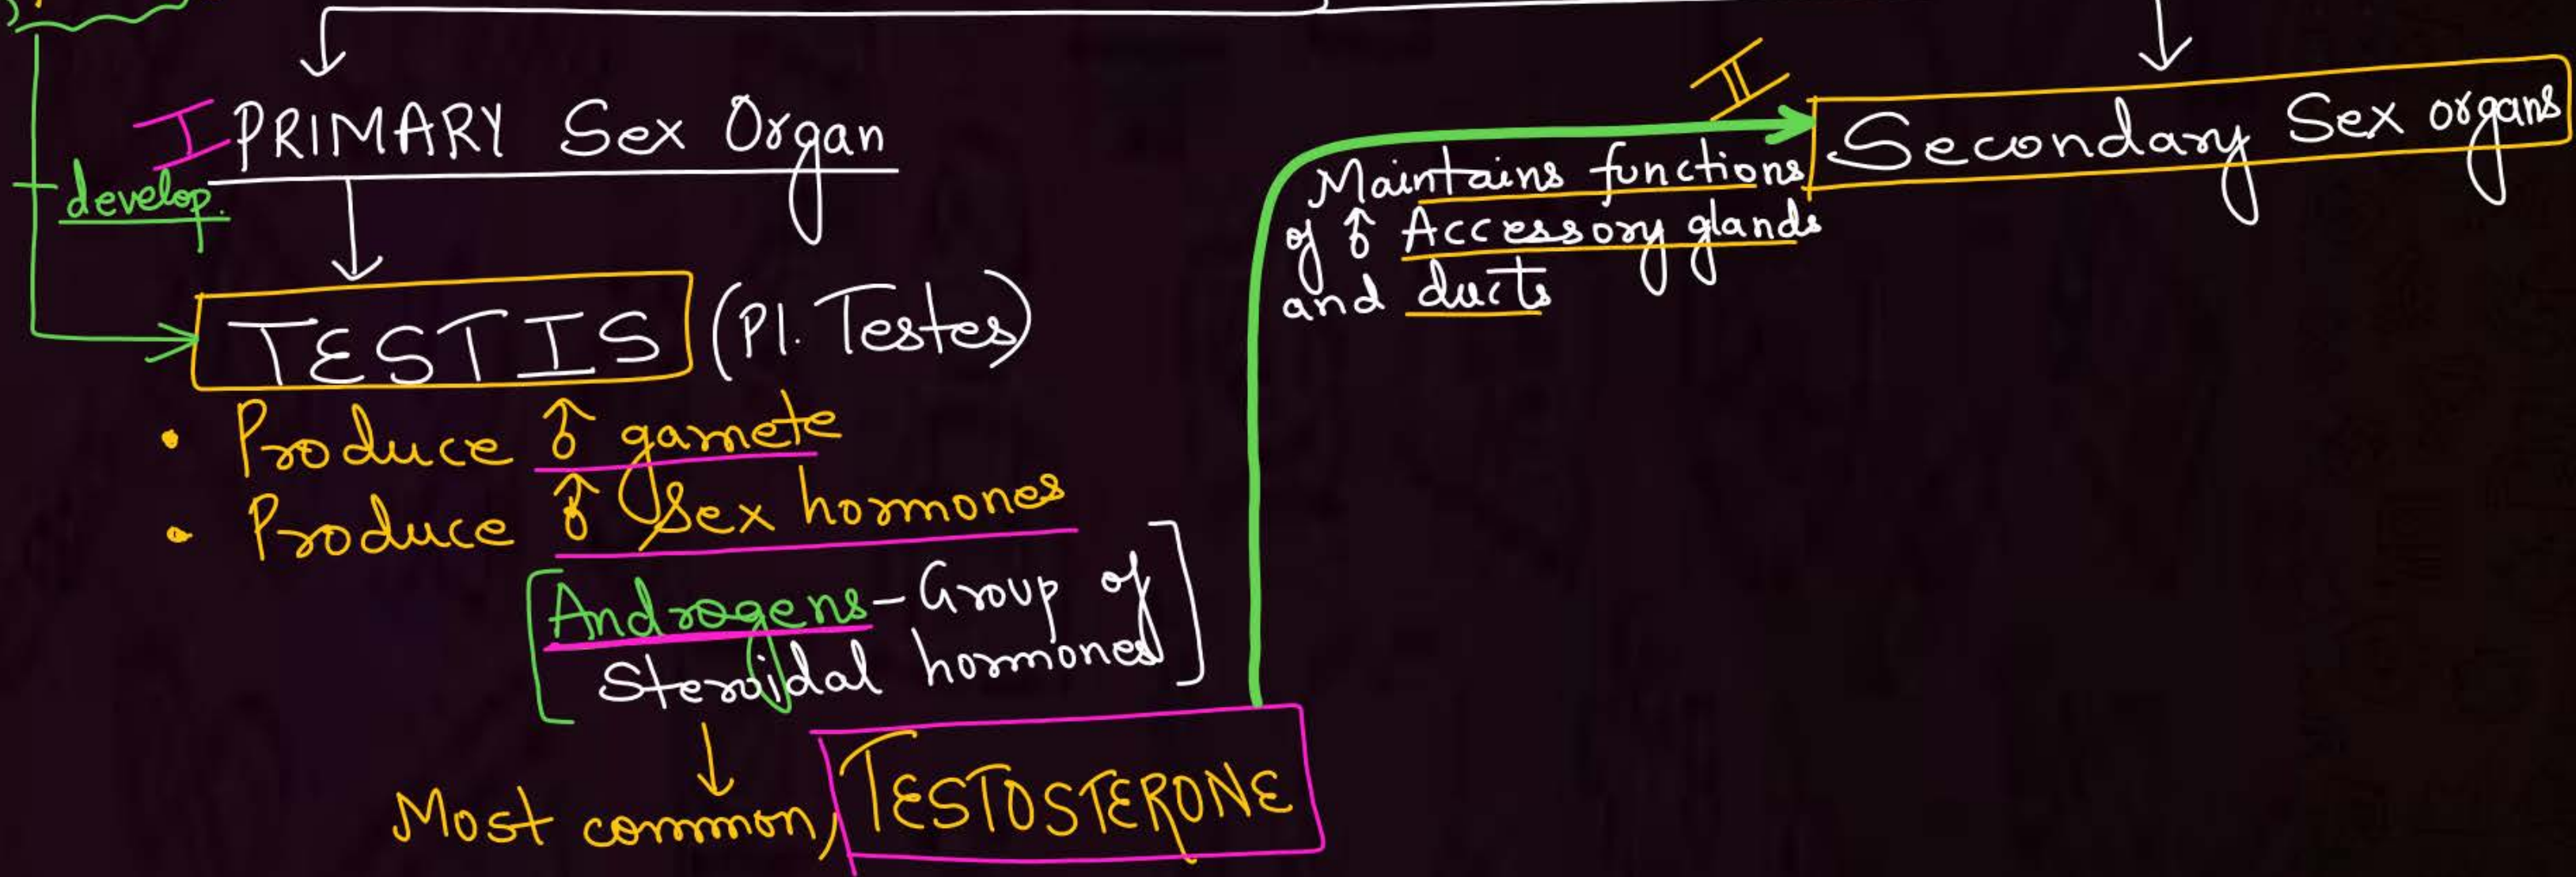 I PRIMARY Sex Organ
develop.
TESTIS (Pl. Testes)
• Produce ♂ gamete
• Produce ♂ Sex hormones
[Androgens - Group of
Steroidal hormones]
Most common, TESTOSTERONE
II
Secondary Sex organs
Maintains functions
of ♂ Accessory glands
and ducts